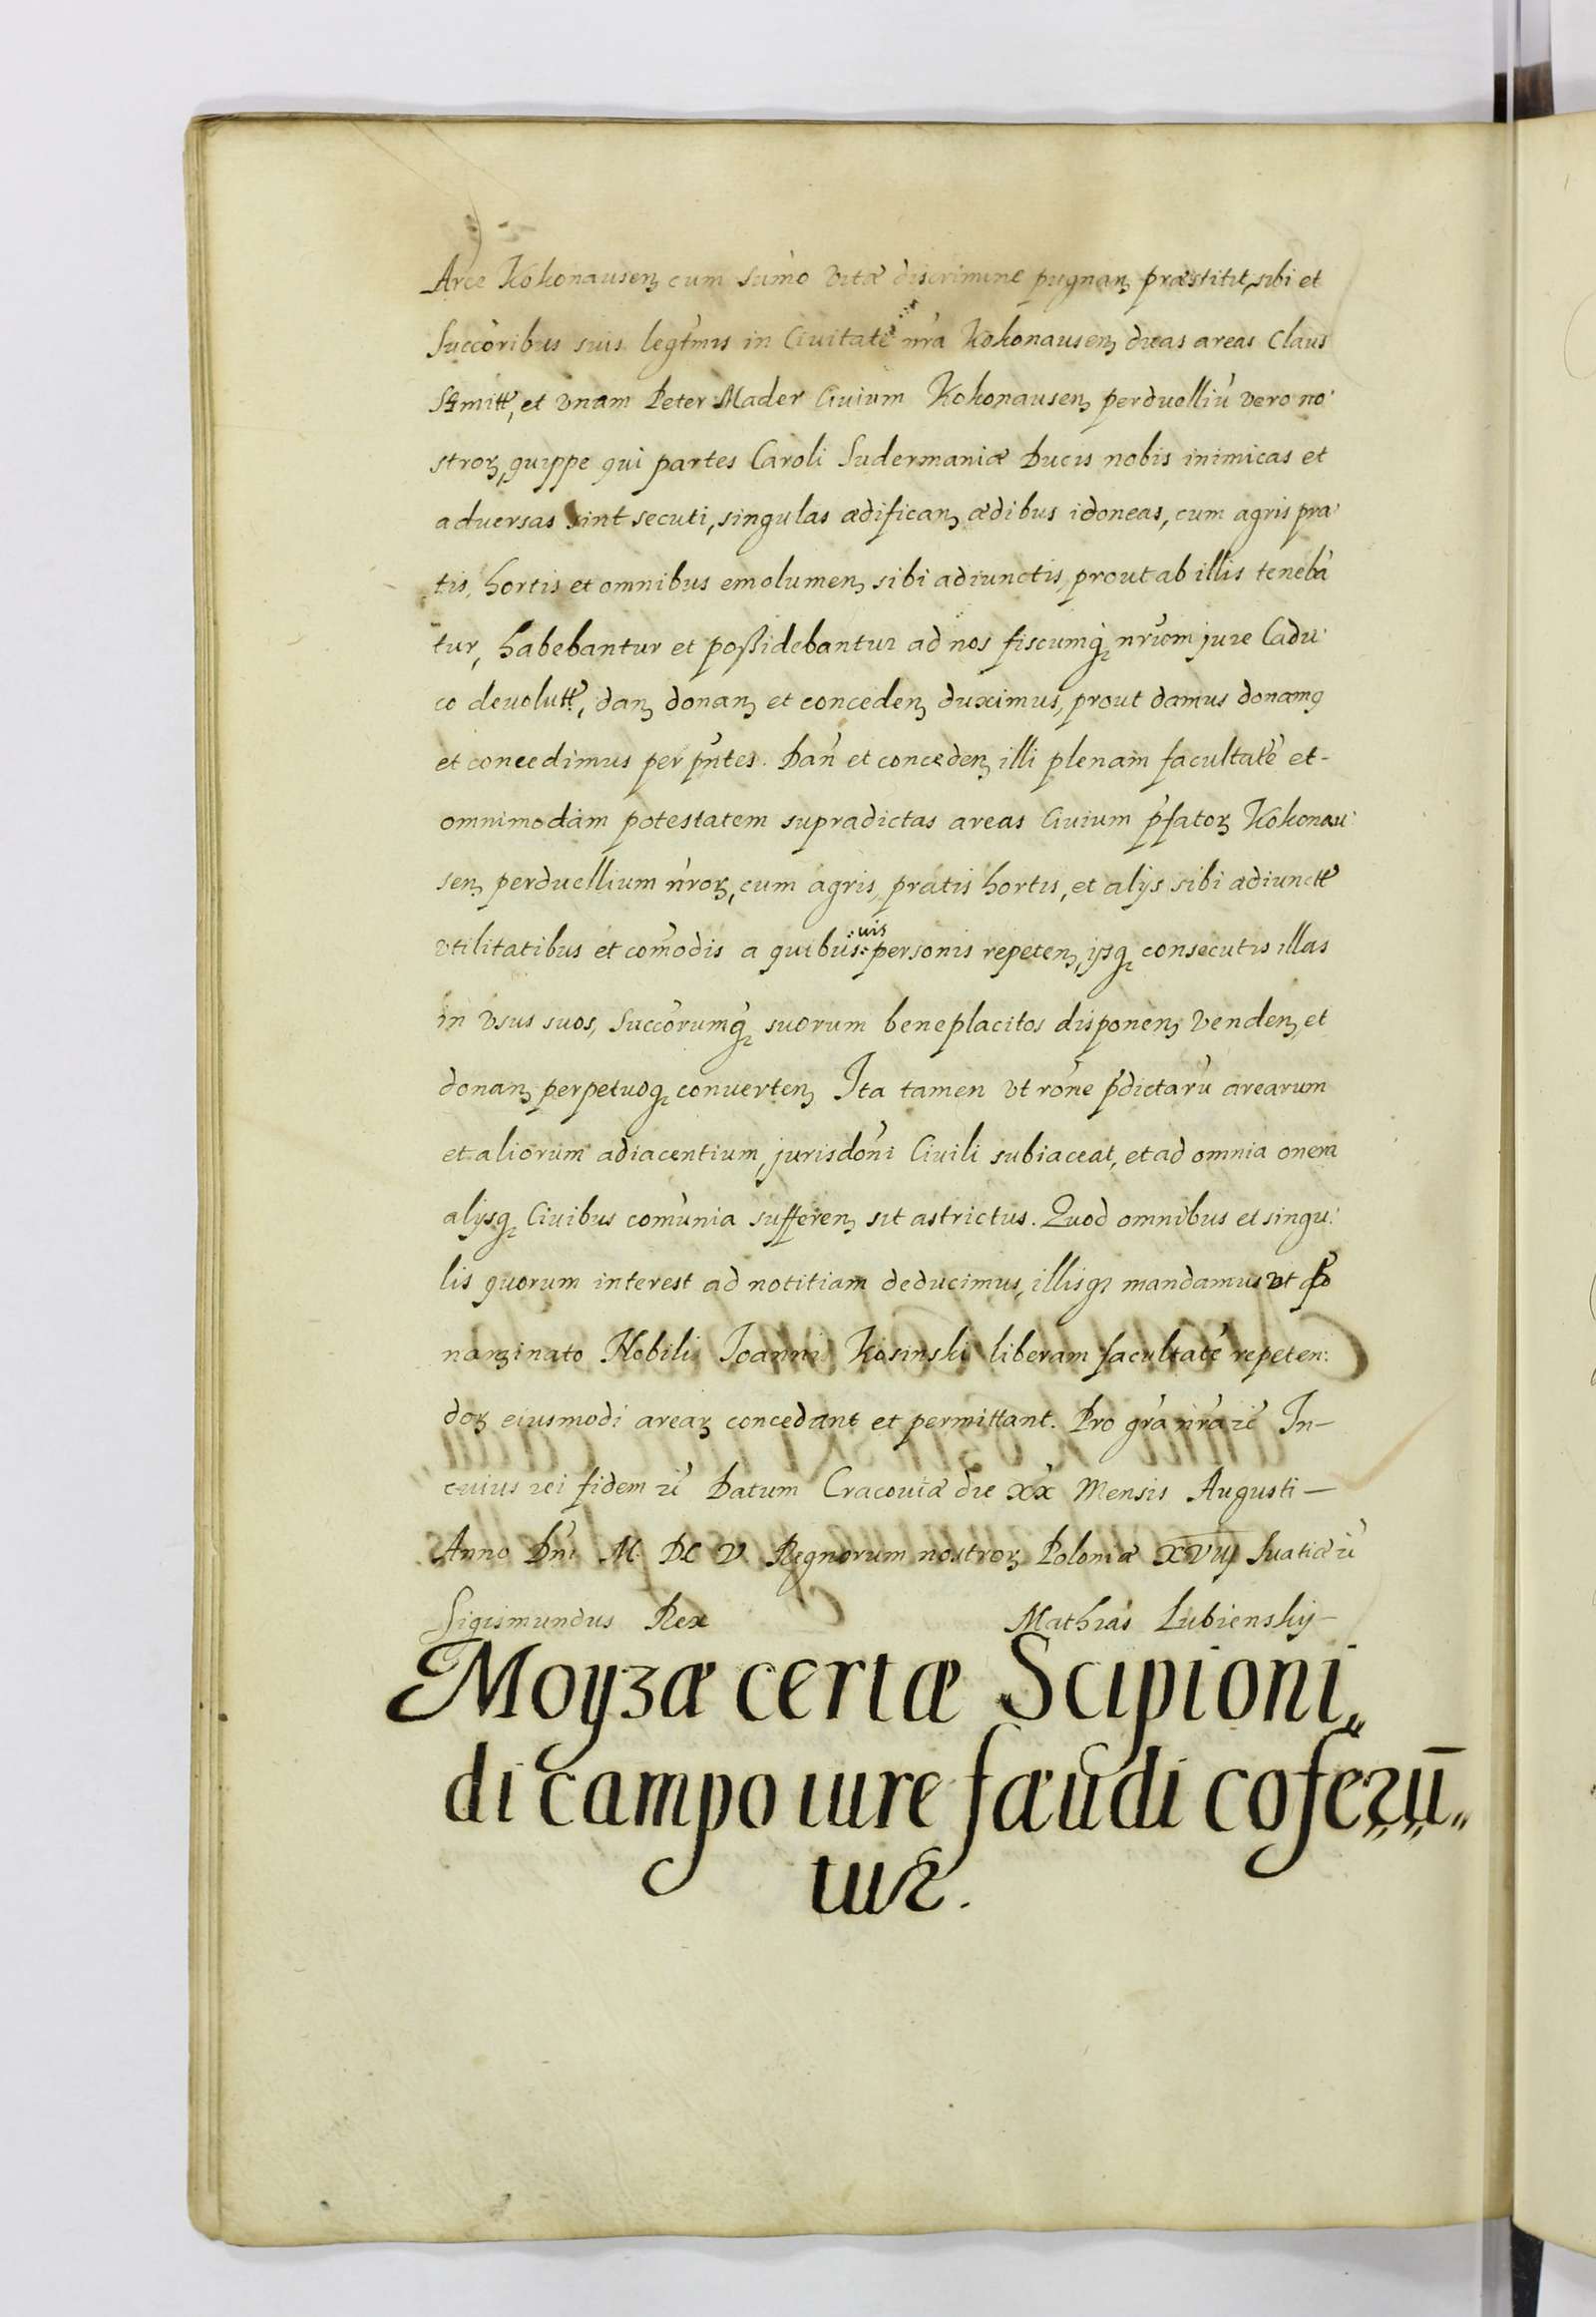 Arce Kokonausenʒ cum sum̄o vitæ discrimine pugnanʒ præstitit, sibi et
Succōribus suis legt̄mis in Civitatē nr̄a Kokonausenʒ duas areas Claus
Smitt, et vnam Peter Mader Civium Kokonausenʒ perduelliū vero no⸗
stroꝝ, quippe qui partes Caroli Sudermaniæ Ducis nobis inimicas et
adversas sint secuti, singulas ædificanʒ ædibus idoneas, cum agris pra⸗
tis, hortis et omnibus emolumenʒ sibi adiunctis, prout ab illis tenebā
tur, habebantur et poßidebantur ad nos fiscumqꝫ nr̄um jure Cadu⸗
co devolutꝭ, danʒ donanʒ et concedenʒ duximus, prout damus donamꝯ
et concedimus per pn̄tes. Dan̄ et concedenʒ illi plenam facultatē et-
omnimodam potestatem supradictas areas Civium p̄fatoꝝ Kokonau⸗
senʒ perduellium nr̄oꝝ, cum agris, pratis hortis, et alijs sibi adiunctꝭ
vtilitatibus et com̄odis a quibus⸗vis personis repetenʒ, ijsqꝫ consecutis illas
in vsus suos, Succōrumqꝫ suorum beneplacitos disponenʒ vendenʒ, et
donanʒ perpetuoqꝫ convertenʒ Ita tamen vt rōne p̄dictarū arearum
et aliorum adiacentium, jurisdōni Civili subiaceat, et ad omnia onera
alijsqꝫ Civibus comūnia sufferenʒ sit astrictus. Quod omnibus et singu⸗
lis quorum interest ad notitiam deducimus, illisqꝫ mandamus vt
naminato Nobili Joanni Kosinski liberam facultatē repeten:
doꝝ eiusmodi areaꝝ concedant et permittant. Pro gr̄a nr̄a ꝛc̄ In—
cuius rei fidem ꝛc̄ Datum Cracoviæ die XX Mensis Augusti —
Anno Dn̄i M. DC V Regnorum nostroꝝ Poloniæ XVIIJ Suætiæ ꝛc̄
Sigismundus Rex Mathias Lubienskij—
Moyzæ certæ Scipioni„
di campo iure fæudi coferū„
tur.